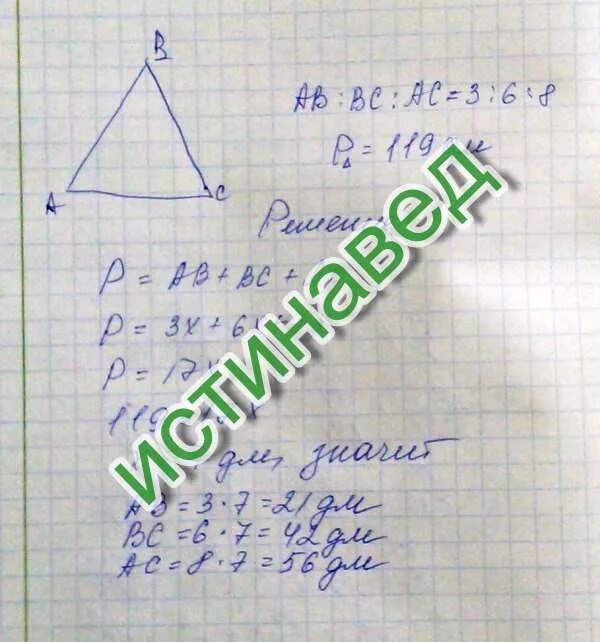 B
A
C
AB : BC : AC = 3 : 6 : 8
P△ = 119
P = AB + BC +
P = 3x + 6
P = 17
119
дм, значит
AB = 3 · 7 = 21 дм
BC = 6 · 7 = 42 дм
AC = 8 · 7 = 56 дм
истинавед